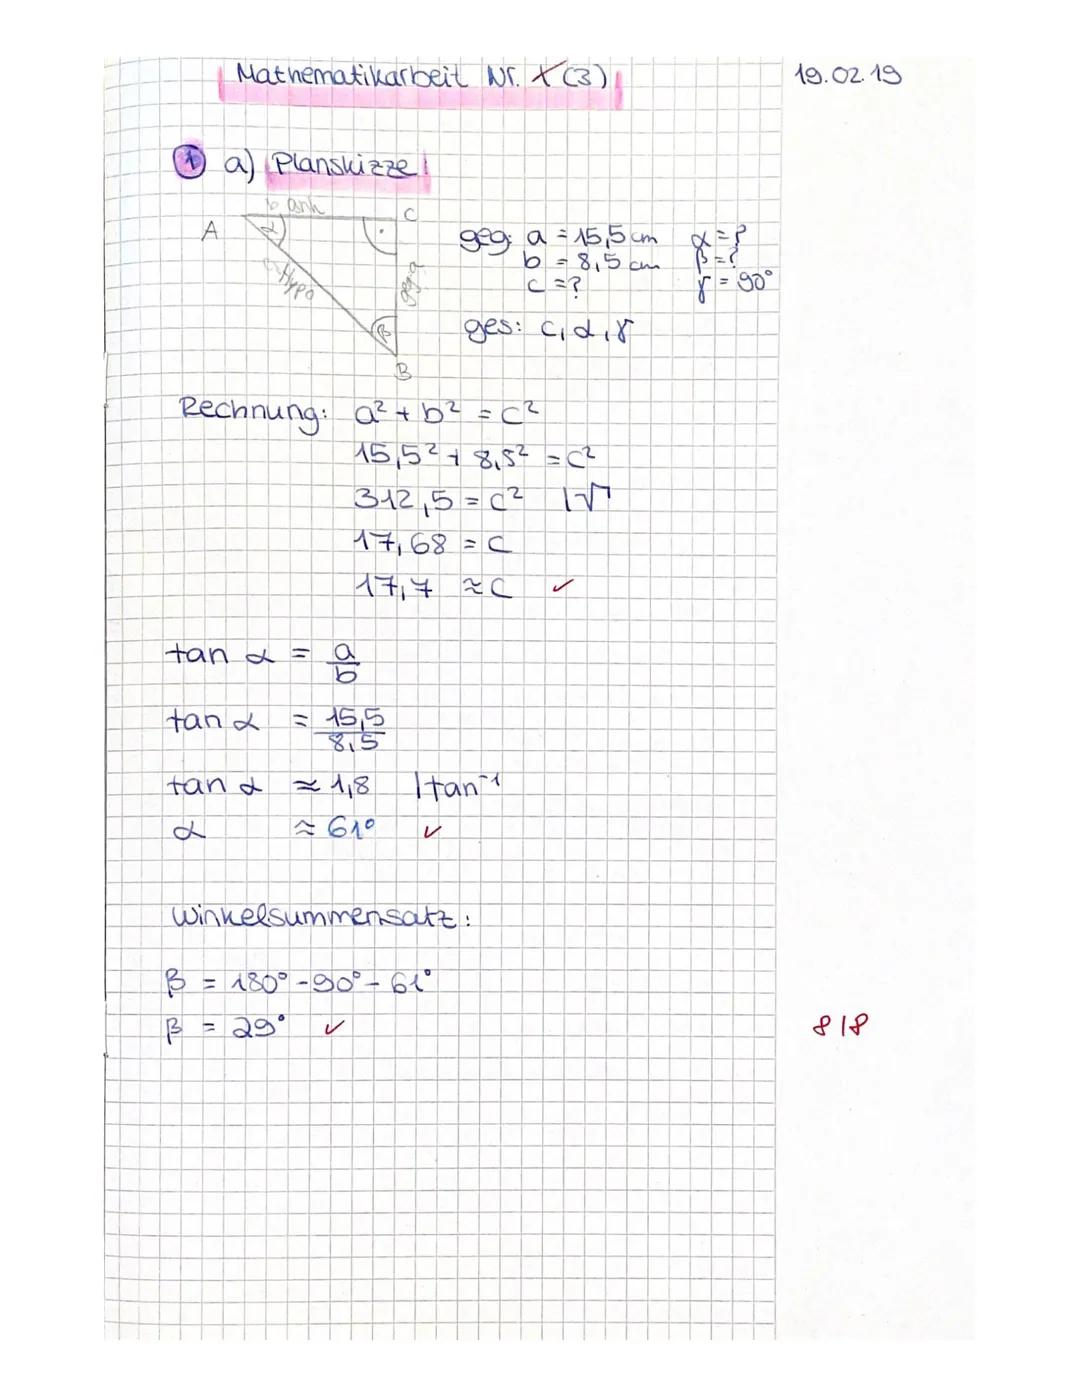 Mathematikarbeit Nr. X (3)
19.02.19
1 a) Planskizze
b anh
A
C
α
Hypo
geg a
β
B
geg: a = 15,5 cm α = ?
b = 8,5 cm β = ?
c = ? γ = 90°
ges: c, α, γ
Rechnung: a² + b² = c²
15,5² + 8,5² = c²
312,5 = c² |√
17,68 = c
17,7 ≈ c ✓
tan α = a/b
tan α = 15,5/8,5
tan α ≈ 1,8 | tan⁻¹
α ≈ 61° ✓
Winkelsummensatz:
β = 180° - 90° - 61°
β = 29° ✓
8/8